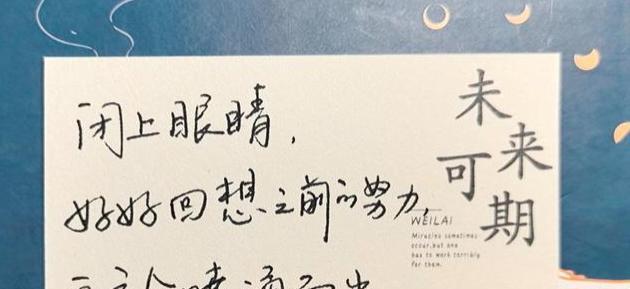 闭上眼睛，
好好回想之前的努力，
未来
可期
WEILAI
Miracles sometimes
occur, but one
has to work terribly
for them.